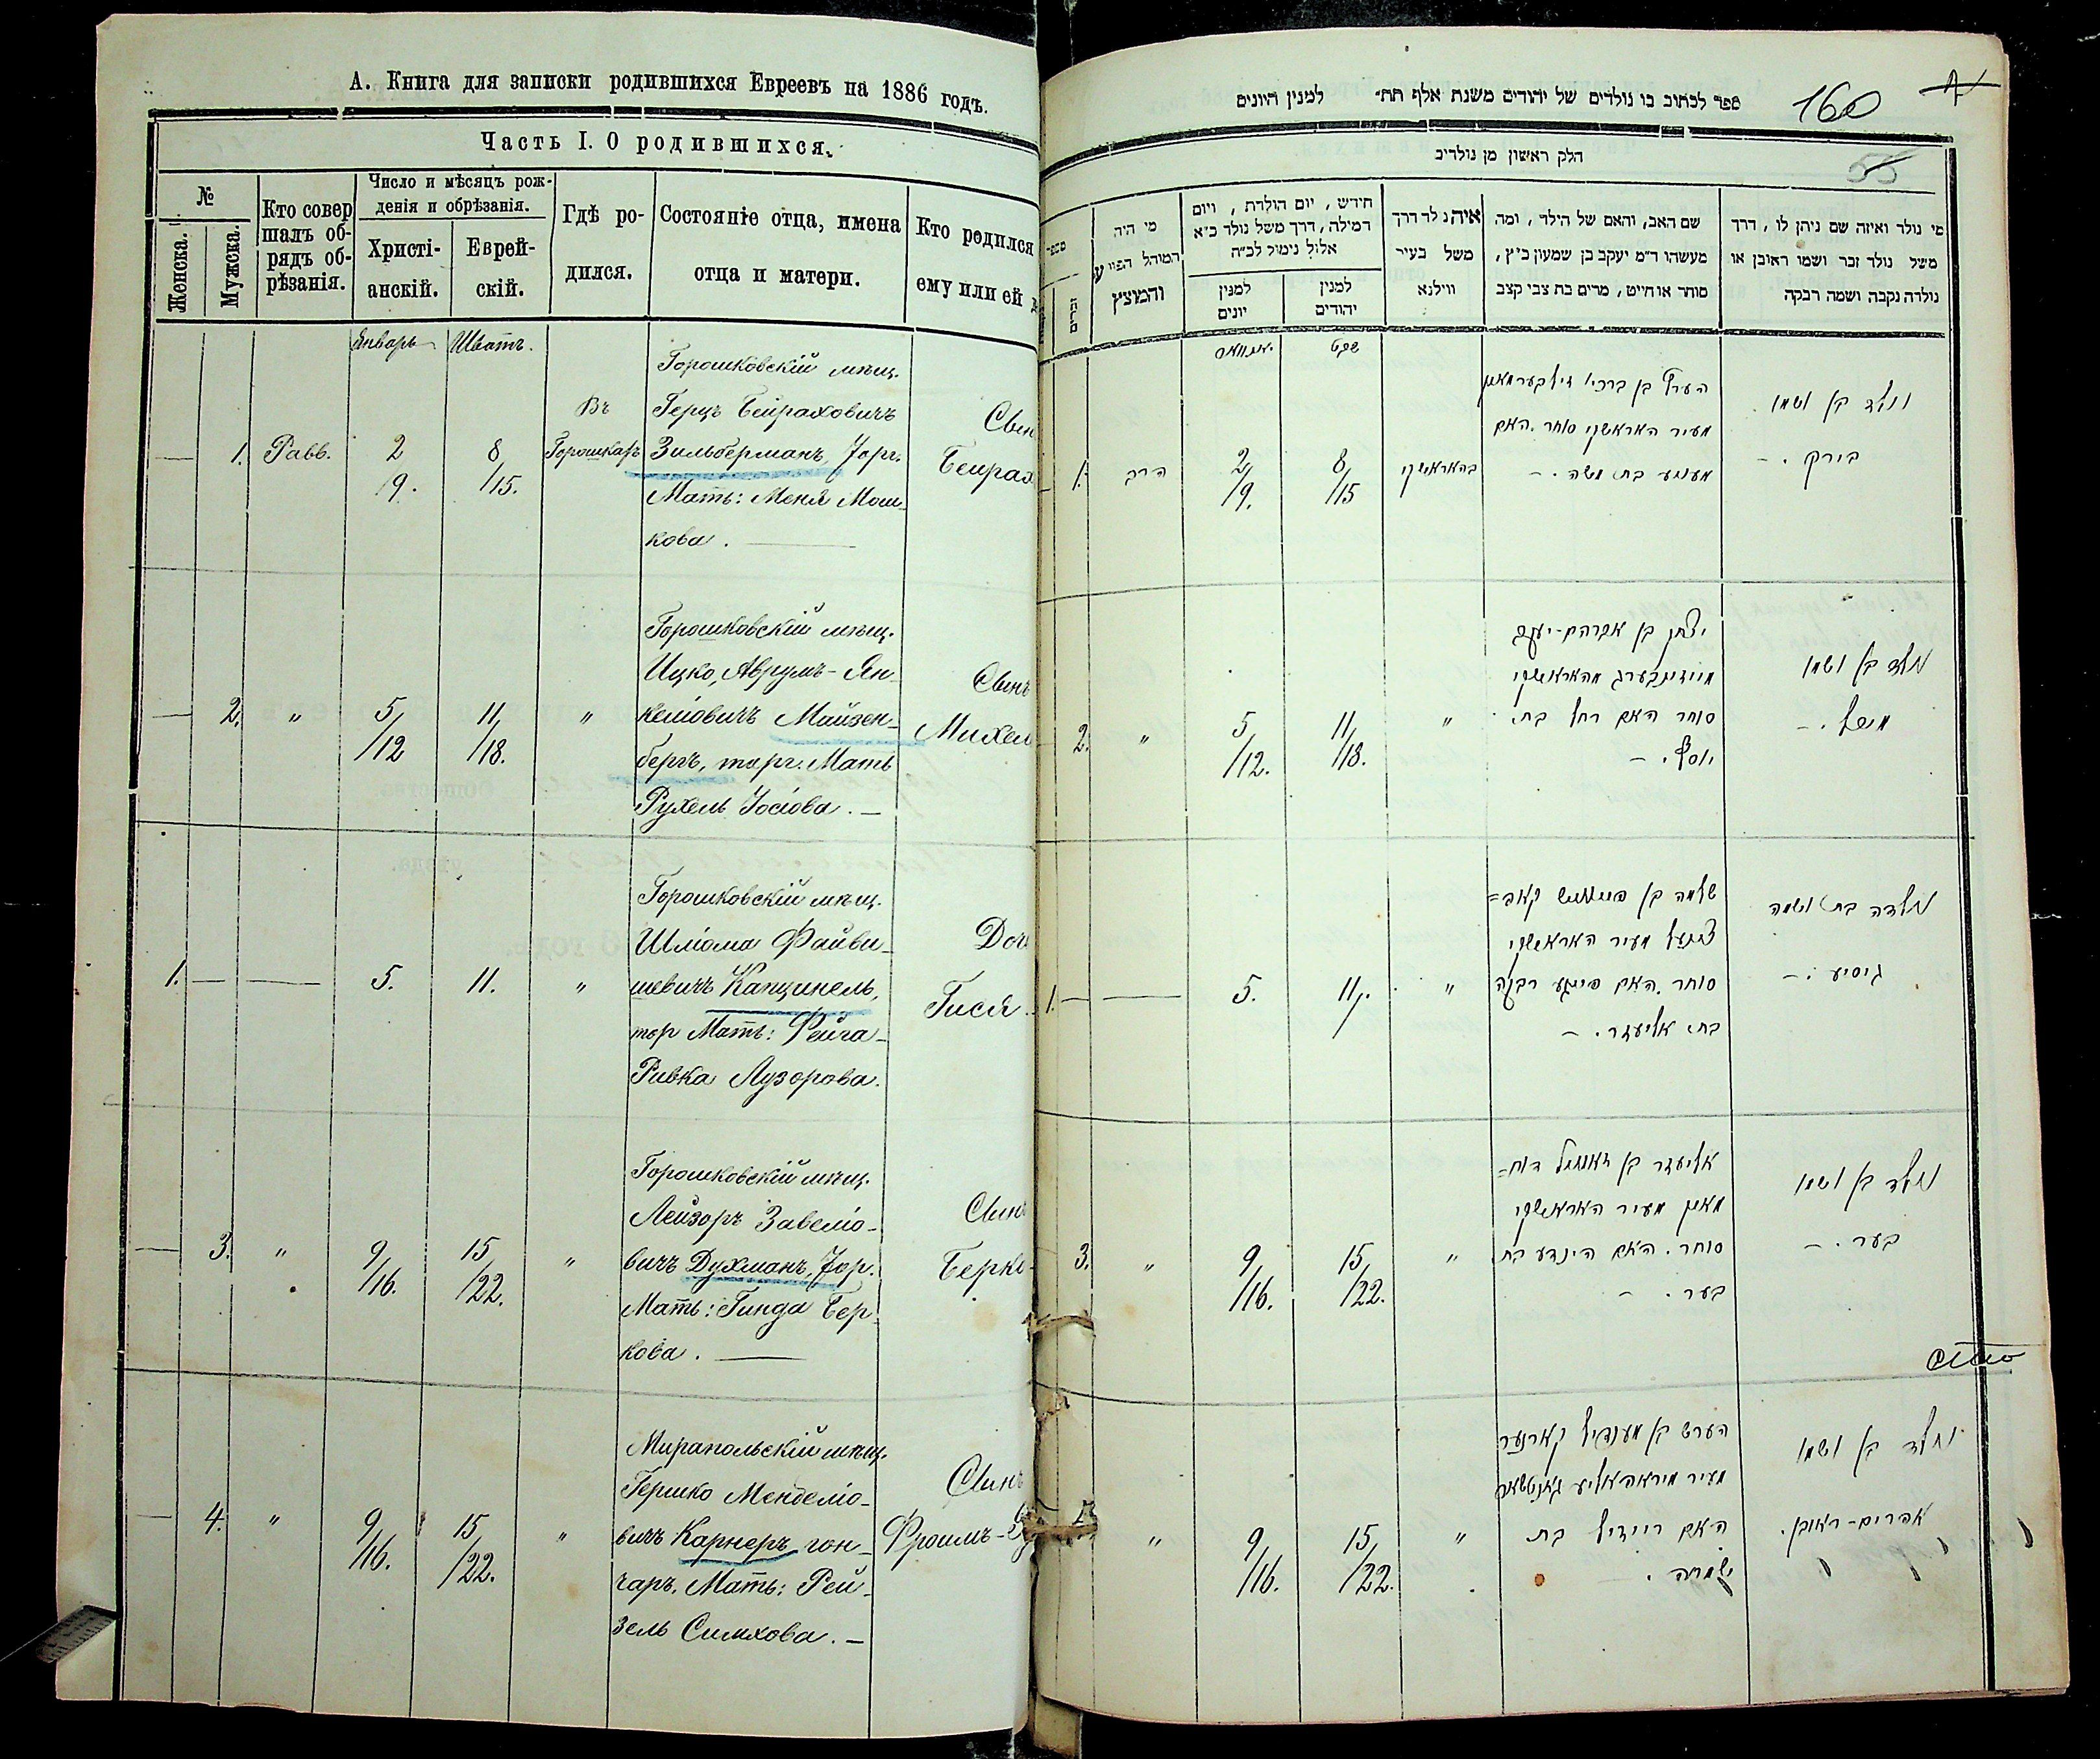 А. Книга для записки родившихся Евреевъ на 1886 годъ.
Часть I. О родившихся.
№
Женска.
Мужска.
Кто совер
шалъ об-
рядъ об-
рѣзанія.
Число и мѣсяцъ рож-
денія и обрѣзанія.
Христі-
анскій.
Еврей-
скій.
Гдѣ ро-
дился.
Состояніе отца, имена
отца и матери.
Кто родился
ему или ей
Январь
Шватъ.
— 1. Равв.
2/9.
8/15.
Въ
Горошкахъ
Горошковскій мѣщ.
Герцъ Бейраховичъ
Зильберманъ, торг.
Мать: Меня Мош-
кова. —
Сын
Бейрах
— 2. "
5/12
11/18.
"
Горошковскій мѣщ.
Ицко, Аврумъ-Ян-
келіовичъ Майзен-
бергъ, торг. Мать
Рухель Іосіова. —
Сынъ
Михел
1. — —
5.
11.
"
Горошковскій мѣщ.
Шліома Файви-
шевичъ Капцинель,
тор Мать: Фейга-
Ривка Лузорова.
Доч
Гися.
— 3. "
9/16.
15/22.
"
Горошковскій мѣщ.
Лейзоръ Завеліо-
вичъ Духманъ, тор.
Мать: Гинда Бер-
кова. —
Сынъ
Берко
— 4. "
9/16.
15/22.
"
Миропольскій мѣщ.
Гершко Менделіо-
вичъ Карнеръ гон-
чаръ. Мать: Рей-
зель Симхова. —
Сынъ
Фроимъ-
ספר לכתוב בו נולדים של יהודים משנת אלף תת״ למנין היונים
160
55
חלק ראשון מן נולדים
מספר
זכרים
מי היה
המוהל הפורע
והמוצץ
חידש, יום הולדת, ויום
המילה, דרך משל נולד כ״א
אלול נימול לכ״ה
למנין
יונים
למנין
יהודים
איה נולד דרך
משל בעיר
ווילנא
שם האב, והאם של הילד, ומה
מעשהו ד״מ יעקב בן שמעון כ״ץ,
סוחר או חייט, מרים בת צבי קצב
מי נולד ואיזה שם ניתן לו, דרך
משל נולד זכר ושמו ראובן או
נולדה נקבה ושמה רבקה
יאנוואר
שבט
1. הרב
2/9.
8/15
בהאראשקי
הערץ בן ברכי׳ זילבערמאן
מעיר האראשקי סוחר. האם
מעניע בת משה. —
נולד בן ושמו
בירק. —
2. "
5/12.
11/18.
"
יצחק בן אברהם-יעקב
מייזינבערג מהאראשקי
סוחר האם רחל בת
יוסף. —
נולד בן ושמו
מיכל. —
1. — —
5.
11.
"
שלמה בן פייוויש קאפ=
צינעל מעיר האראשקי
סוחר. האם פייגע רבקה
בת אליעזר. —
נולדה בת ושמה
גיסיע. —
3. "
9/16.
15/22.
"
אליעזר בן זאוויל דוח=
מאן מעיר האראשקי
סוחר. האם הינדע בת
בער. —
נולד בן ושמו
בער. —
"
9/16.
15/22.
"
הערש בן מענדיל קארנער
מעיר מיראפאליע גאנטשאר
האם רייזיל בת
שמחה.
נולד בן ושמו
אפרים-ראובן.